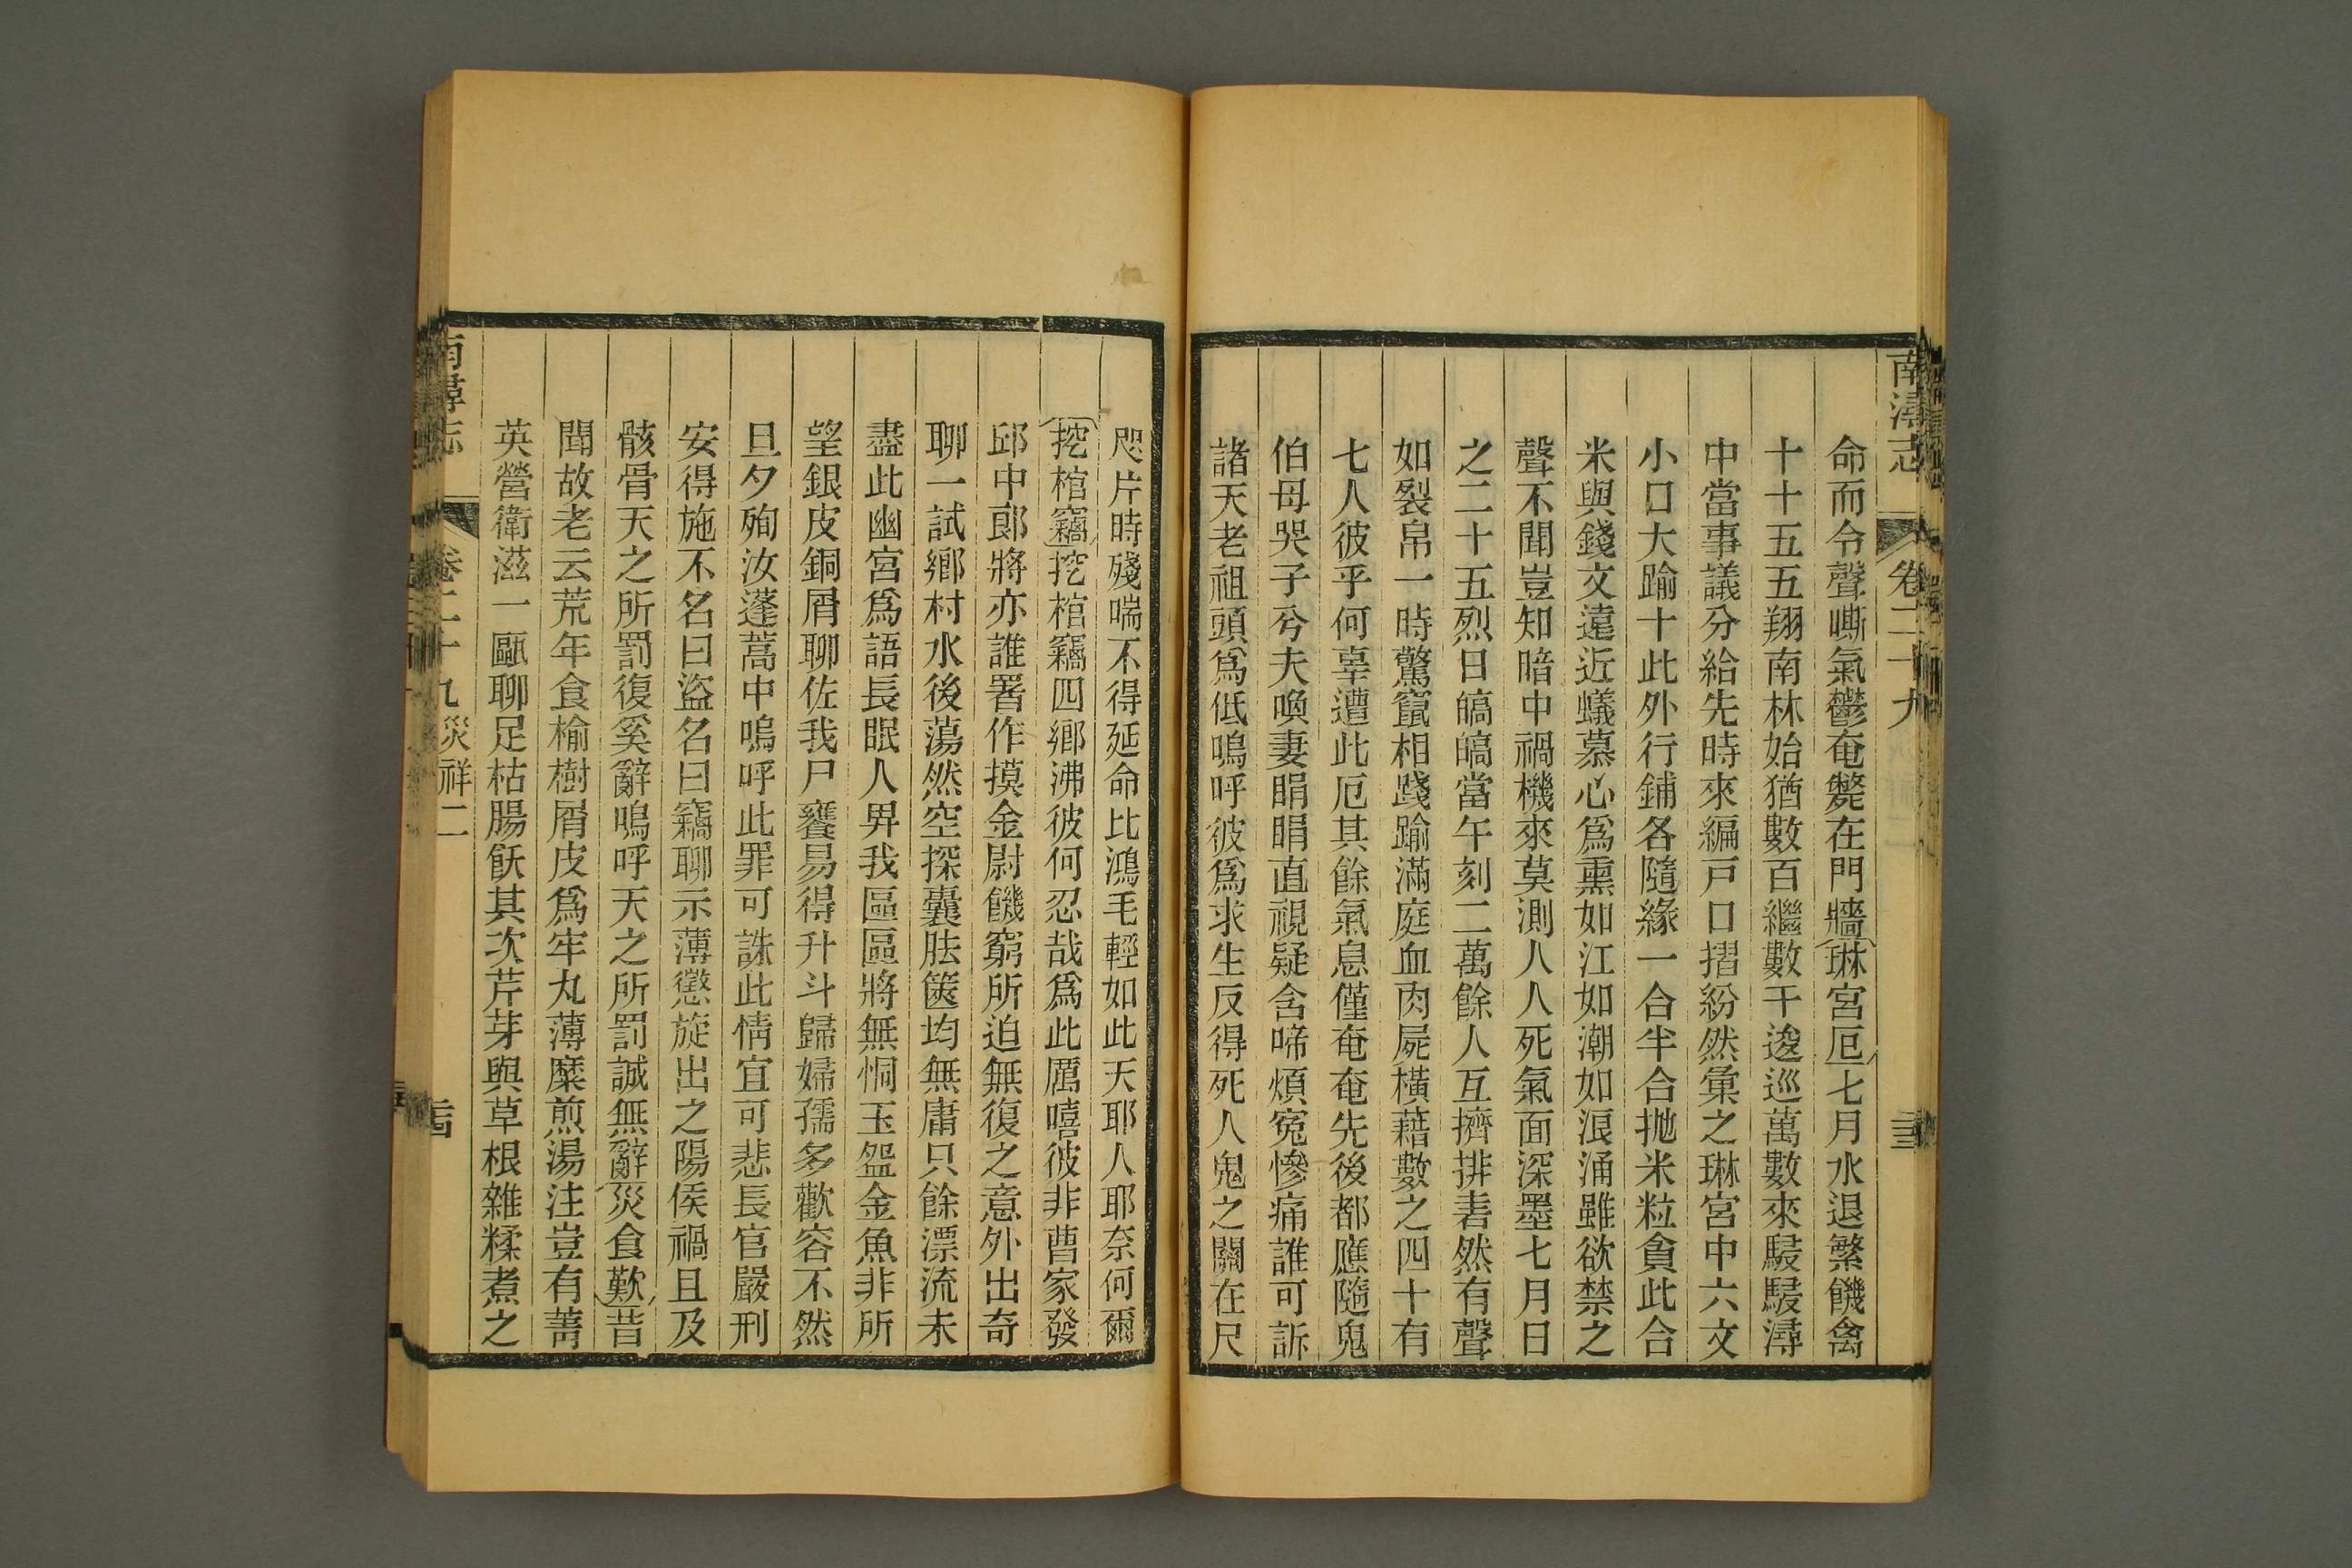 南潯志 卷二十九 三
命而令聲嘶氣鬱奄斃在門牆琳宮厄七月水退繁饑禽
十十五五翔南林始猶數百繼數千逡巡萬數來駸駸潯
中當事議分給先時來編戸口摺紛然彙之琳宮中六文
小口大踰十此外行鋪各隨緣一合半合抛米粒貪此合
米與錢文遠近蟻慕心爲熏如江如潮如浪涌雖欲禁之
聲不聞豈知暗中禍機來莫測人人死氣面深墨七月日
之二十五烈日皜皜當午刻二萬餘人互擠排砉然有聲
如裂帛一時驚竄相踐踰滿庭血肉屍橫藉數之四十有
七人彼乎何辜遭此厄其餘氣息僅奄奄先後都應隨鬼
伯母哭子兮夫喚妻睊睊直視疑含啼煩冤慘痛誰可訴
諸天老祖頭爲低嗚呼彼爲求生反得死人鬼之關在尺
咫片時殘喘不得延命比鴻毛輕如此天耶人耶奈何爾
挖棺竊挖棺竊四鄉沸彼何忍哉爲此厲嘻彼非曹家發
邱中郎將亦誰署作摸金尉饑窮所迫無復之意外出奇
聊一試鄉村水後蕩然空探囊胠篋均無庸只餘漂流未
盡此幽宮爲語長眠人畀我區區將無恫玉盌金魚非所
望銀皮銅屑聊佐我尸饔易得升斗歸婦孺多歡容不然
旦夕殉汝蓬蒿中嗚呼此罪可誅此情宜可悲長官嚴刑
安得施不名曰盜名曰竊聊示薄懲旋出之陽侯禍且及
骸骨天之所罰復奚辭嗚呼天之所罰誠無辭災食歎昔
聞故老云荒年食榆樹屑皮爲牢丸薄糜煎湯注豈有菁
英營衛滋一甌聊足枯腸飫其次芹芽與草根雜糅煮之
南潯志 卷二十九災祥二